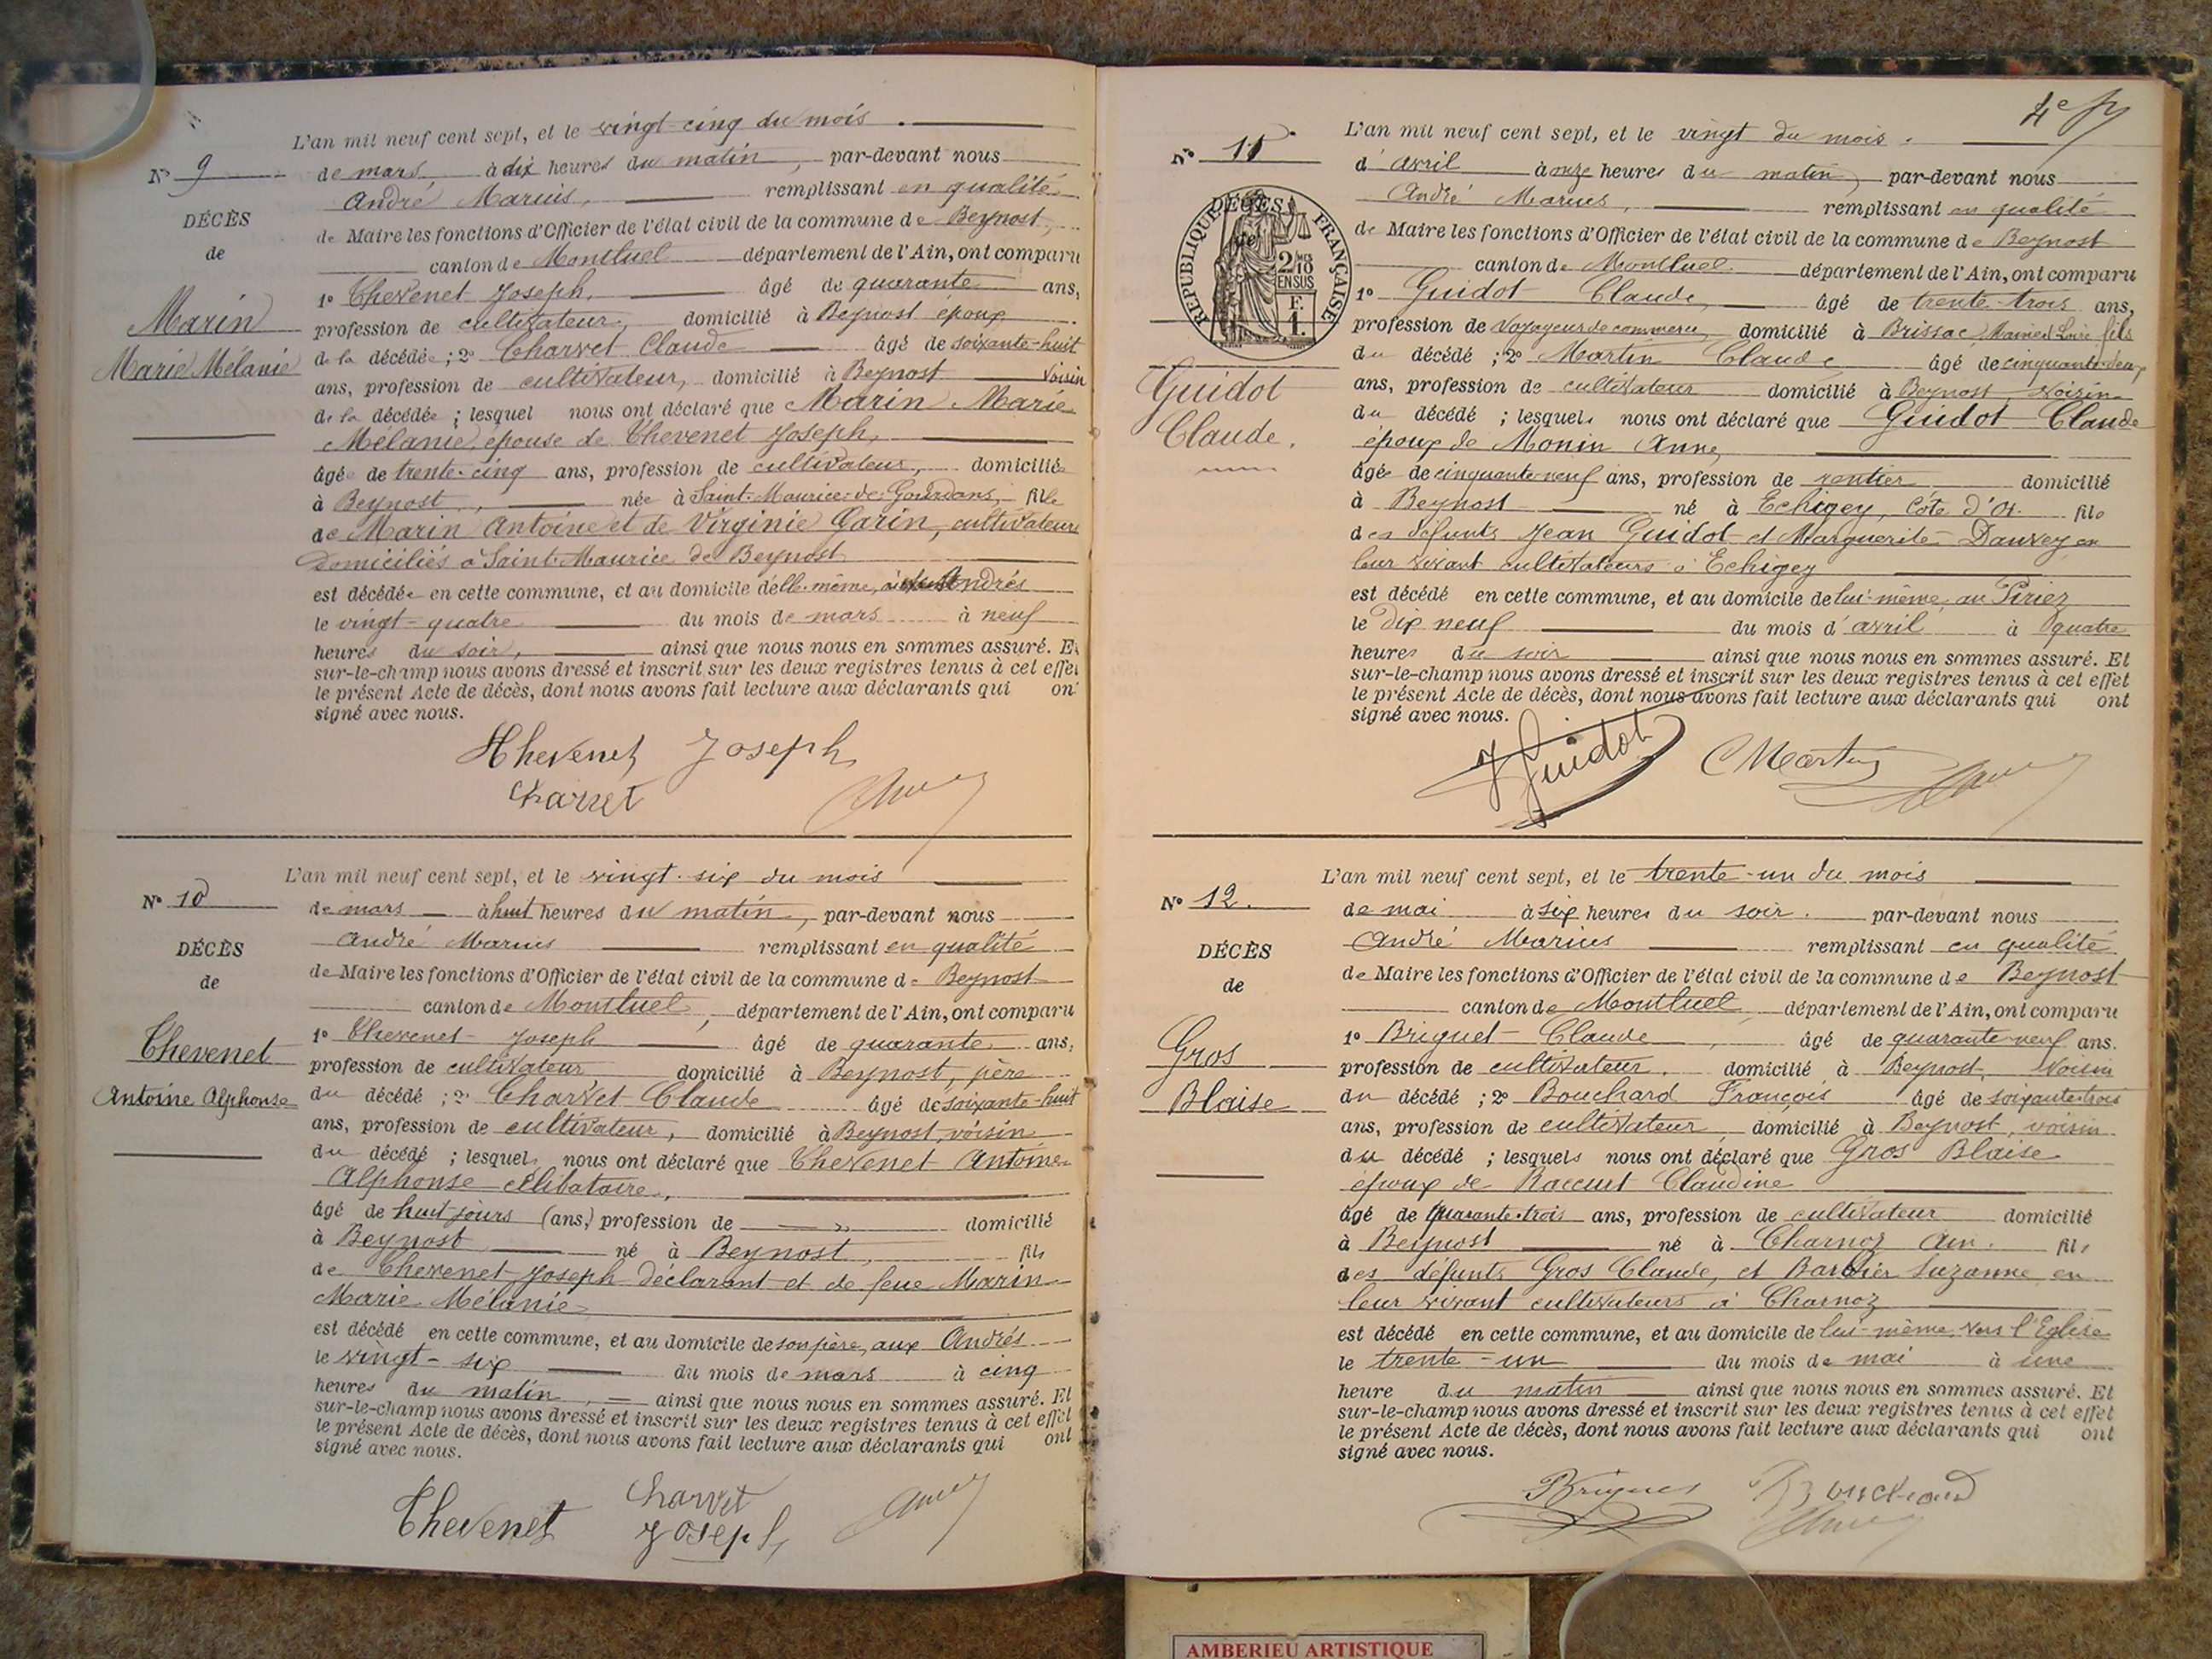 L'an mil neuf cent sept, et le vingt-cinq du mois
N° 9
de mars à dix heures du matin, par-devant nous
André Marius, remplissant en qualité
DÉCÈS
de Maire les fonctions d'Officier de l'état civil de la commune de Beynost,
de
canton de Montluel département de l'Ain, ont comparu
1° Chevenet Joseph, âgé de quarante ans,
Marin
profession de cultivateur, domicilié à Beynost époux
Marie Mélanie
de la décédée ; 2° Charvet Claude âgé de soixante-huit
ans, profession de cultivateur, domicilié à Beynost voisin
de la décédée ; lesquel nous ont déclaré que Marin Marie
Mélanie, épouse de Chevenet Joseph,
âgée de trente-cinq ans, profession de cultivateur, domiciliée
à Beynost, née à Saint-Maurice-de-Gourdans, fille
de Marin Antoine et de Virginie Garin, cultivateurs
domiciliés à Saint-Maurice de Beynost
est décédée en cette commune, et au domicile d'elle-même, Andrés
le vingt-quatre du mois de mars à neuf
heures du soir, ainsi que nous nous en sommes assuré. Et
sur-le-champ nous avons dressé et inscrit sur les deux registres tenus à cet effet
le présent Acte de décès, dont nous avons fait lecture aux déclarants qui ont
signé avec nous.
Chevenet Joseph
Charvet
L'an mil neuf cent sept, et le vingt-six du mois
N° 10
de mars à huit heures du matin, par-devant nous
André Marius remplissant en qualité
DÉCÈS
de Maire les fonctions d'Officier de l'état civil de la commune de Beynost
de
canton de Montluel, département de l'Ain, ont comparu
1° Chevenet Joseph âgé de quarante ans,
Chevenet
profession de cultivateur domicilié à Beynost, père
Antoine Alphonse
du décédé ; 2° Charvet Claude âgé de soixante-huit
ans, profession de cultivateur, domicilié à Beynost, voisin
du décédé ; lesquels nous ont déclaré que Chevenet Antoine
Alphonse célibataire,
âgé de huit jours (ans,) profession de » domicilié
à Beynost né à Beynost, fils
de Chevenet Joseph déclarant et de feue Marin
Marie Mélanie
est décédé en cette commune, et au domicile de son père, aux Andrés
le vingt-six du mois de mars à cinq
heures du matin, ainsi que nous nous en sommes assuré. Et
sur-le-champ nous avons dressé et inscrit sur les deux registres tenus à cet effet
le présent Acte de décès, dont nous avons fait lecture aux déclarants qui ont
signé avec nous.
Chevenet Charvet
Joseph
4e
L'an mil neuf cent sept, et le vingt du mois
N° 11
d'avril à onze heures du matin, par-devant nous
André Marius, remplissant en qualité
DÉCÈS
de
RÉPUBLIQUE FRANÇAISE
2/10 EN SUS
F. 1.
de Maire les fonctions d'Officier de l'état civil de la commune de Beynost
canton de Montluel département de l'Ain, ont comparu
1° Guidot Claude, âgé de trente-trois ans,
profession de voyageur de commerce, domicilié à Brissac, Maine et Loire fils
du décédé ; 2° Martin Claude âgé de cinquante-deux
Guidot
ans, profession de cultivateur domicilié à Beynost, voisin
Claude.
du décédé ; lesquels nous ont déclaré que Guidot Claude
époux de Monin Anne,
âgé de cinquante-neuf ans, profession de rentier domicilié
à Beynost né à Echigey, Côte d'Or fils
des défunts Jean Guidot et Marguerite Dauvey en
leur vivant cultivateurs à Echigey
est décédé en cette commune, et au domicile de lui-même, au Piriez
le dix neuf du mois d'avril à quatre
heures du soir ainsi que nous nous en sommes assuré. Et
sur-le-champ nous avons dressé et inscrit sur les deux registres tenus à cet effet
le présent Acte de décès, dont nous avons fait lecture aux déclarants qui ont
signé avec nous.
Guidot C Martin
L'an mil neuf cent sept, et le trente-un du mois
N° 12.
de mai à six heures du soir. par-devant nous
André Marius remplissant en qualité
DÉCÈS
de Maire les fonctions d'Officier de l'état civil de la commune de Beynost
de
canton de Montluel département de l'Ain, ont comparu
1° Briguet Claude, âgé de quarante-neuf ans.
Gros
profession de cultivateur. domicilié à Beynost, voisin
Blaise
du décédé ; 2° Bouchard François âgé de soixante-trois
ans, profession de cultivateur domicilié à Beynost, voisin
du décédé ; lesquels nous ont déclaré que Gros Blaise
époux de Raccurt Claudine
âgé de quarante-trois ans, profession de cultivateur domicilié
à Beynost né à Charnoz Ain. fils
des défunts Gros Claude, et Barbier Suzanne, en
leur vivant cultivateurs à Charnoz
est décédé en cette commune, et au domicile de lui-même, vers l'Eglise
le trente-un du mois de mai à une
heure du matin ainsi que nous nous en sommes assuré. Et
sur-le-champ nous avons dressé et inscrit sur les deux registres tenus à cet effet
le présent Acte de décès, dont nous avons fait lecture aux déclarants qui ont
signé avec nous.
Briguet Bouchard
AMBERIEU ARTISTIQUE